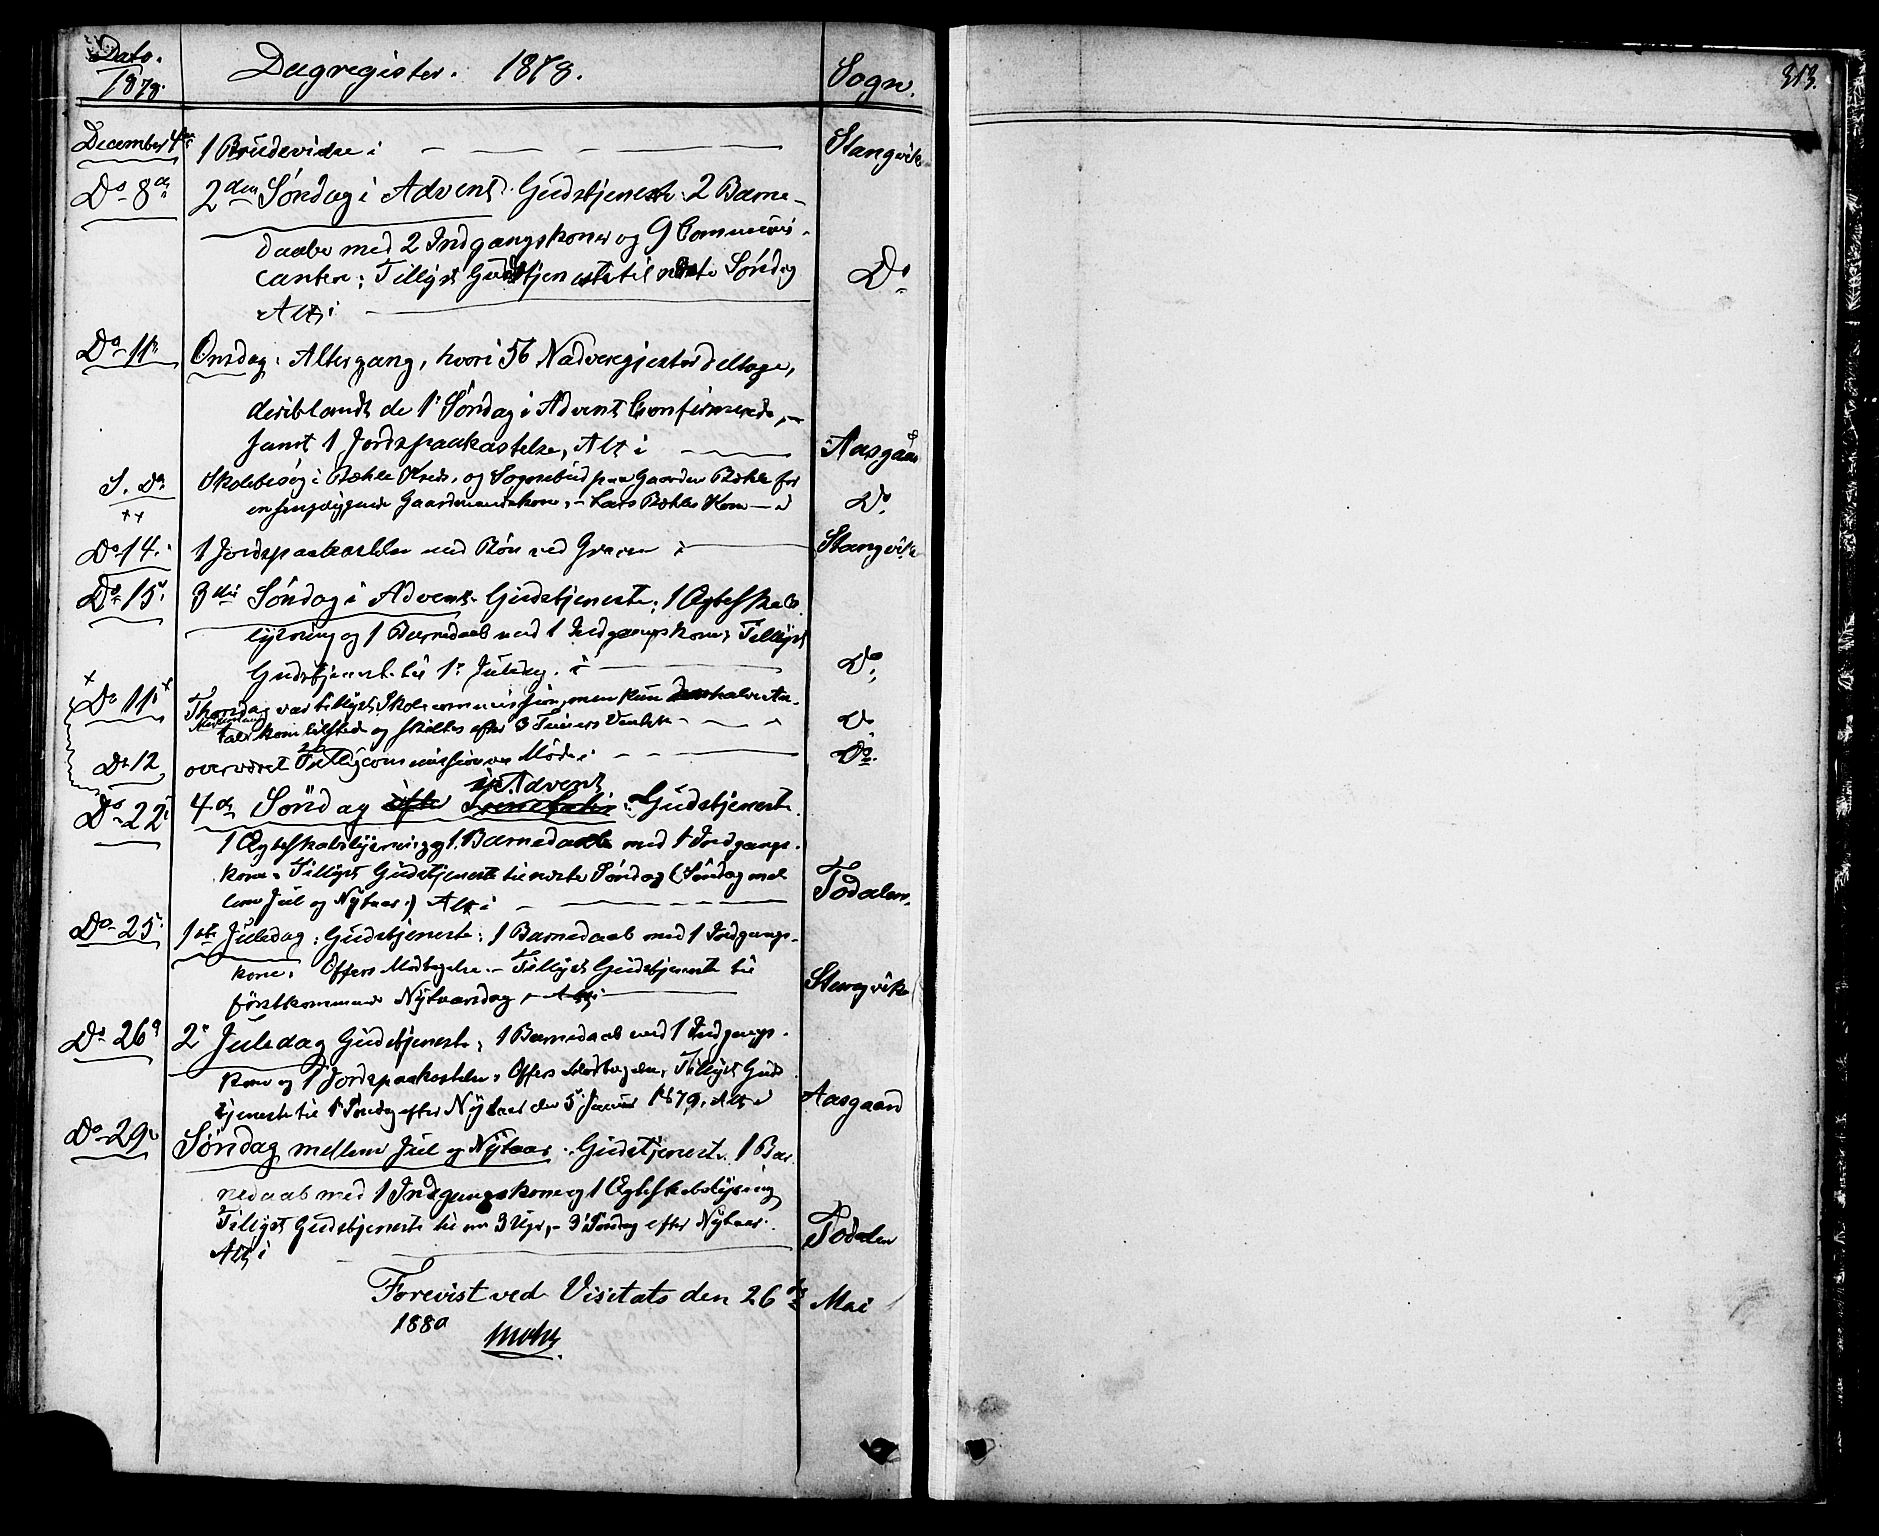 Dato. 1878. Dagregister. 1878. Sogn.
313.
December 4de 1 Brudevielse i Stangvik
Do 8de 2den Søndag i Advent. Gudstjeneste. 2 Barne-
daabe med 2 Indgangskoner og 9 Communi-
canter; Tillyst Gudstjeneste til næste Søndag Do
Alt i
Do 11te Onsdag. Altergang, hvori 56 Nadvergjester deltoge,
deriblandt de 1ste Søndag i Advent Confirmerede,
samt 1 Jordspaakastelse, Alt i Aasgaard
S. D. Skolebesøg i Bæhle Kreds, og Sognebud paa Gaarden Bæhle for
en sengeliggende Gaardmandskone, - Lars Bæhles Kone - i Do
Do 14. 1 Jordspaakastelse med Bøn ved Graven i Stangvik
Do 15. 3die Søndag i Advent. Gudstjeneste; 1 Ægteskabs
lysning og 1 Barnedaab med 1 Indgangskone; Tillyst
Gudstjeneste til 1ste Juledag. i Do
Do 11te Thorsdag var tillyst Skolecommission, men kun halve An-
tal kom tilstede og skiltes efter 3 Timers Do
Do 12 overværet commissionens Møde i Do
Do 22 4de Søndag efter i Advent Gudstjeneste
1 Ægteskabslysning og 1 Barnedaab med 1 Indgangs-
kone. Tillyst Gudstjeneste til næste Søndag (Søndag mel
lem Jul og Nytaar) Alt i Todalen
Do 25. 1ste Juledag. Gudstjeneste; 1 Barnedaab med 1 Indgangs-
kone. Offers Modtagelse. - Tillyst Gudstjeneste til
førstkommende Nytaarsdag. Alt i Stangvik
Do 26de 2den Juledag Gudstjeneste; 1 Barnedaab med 1 Indgangs-
kone og 1 Jordspaakastelse. Offers Modtagelse, Tillyst Guds
tjeneste til 1ste Søndag efter Nytaar den 5te Januar 1879. Alt i Aasgaard
Do 29. Søndag mellem Jul og Nytaar. Gudstjeneste. 1 Bar
nedaab med 1 Indgangskone og 1 Ægteskabslysning
Tillyst Gudstjeneste til om 3 Uger, - 3die Søndag efter Nytaar.
Alt i Todalen
Forevist ved Visitats den 26de Mai
1880